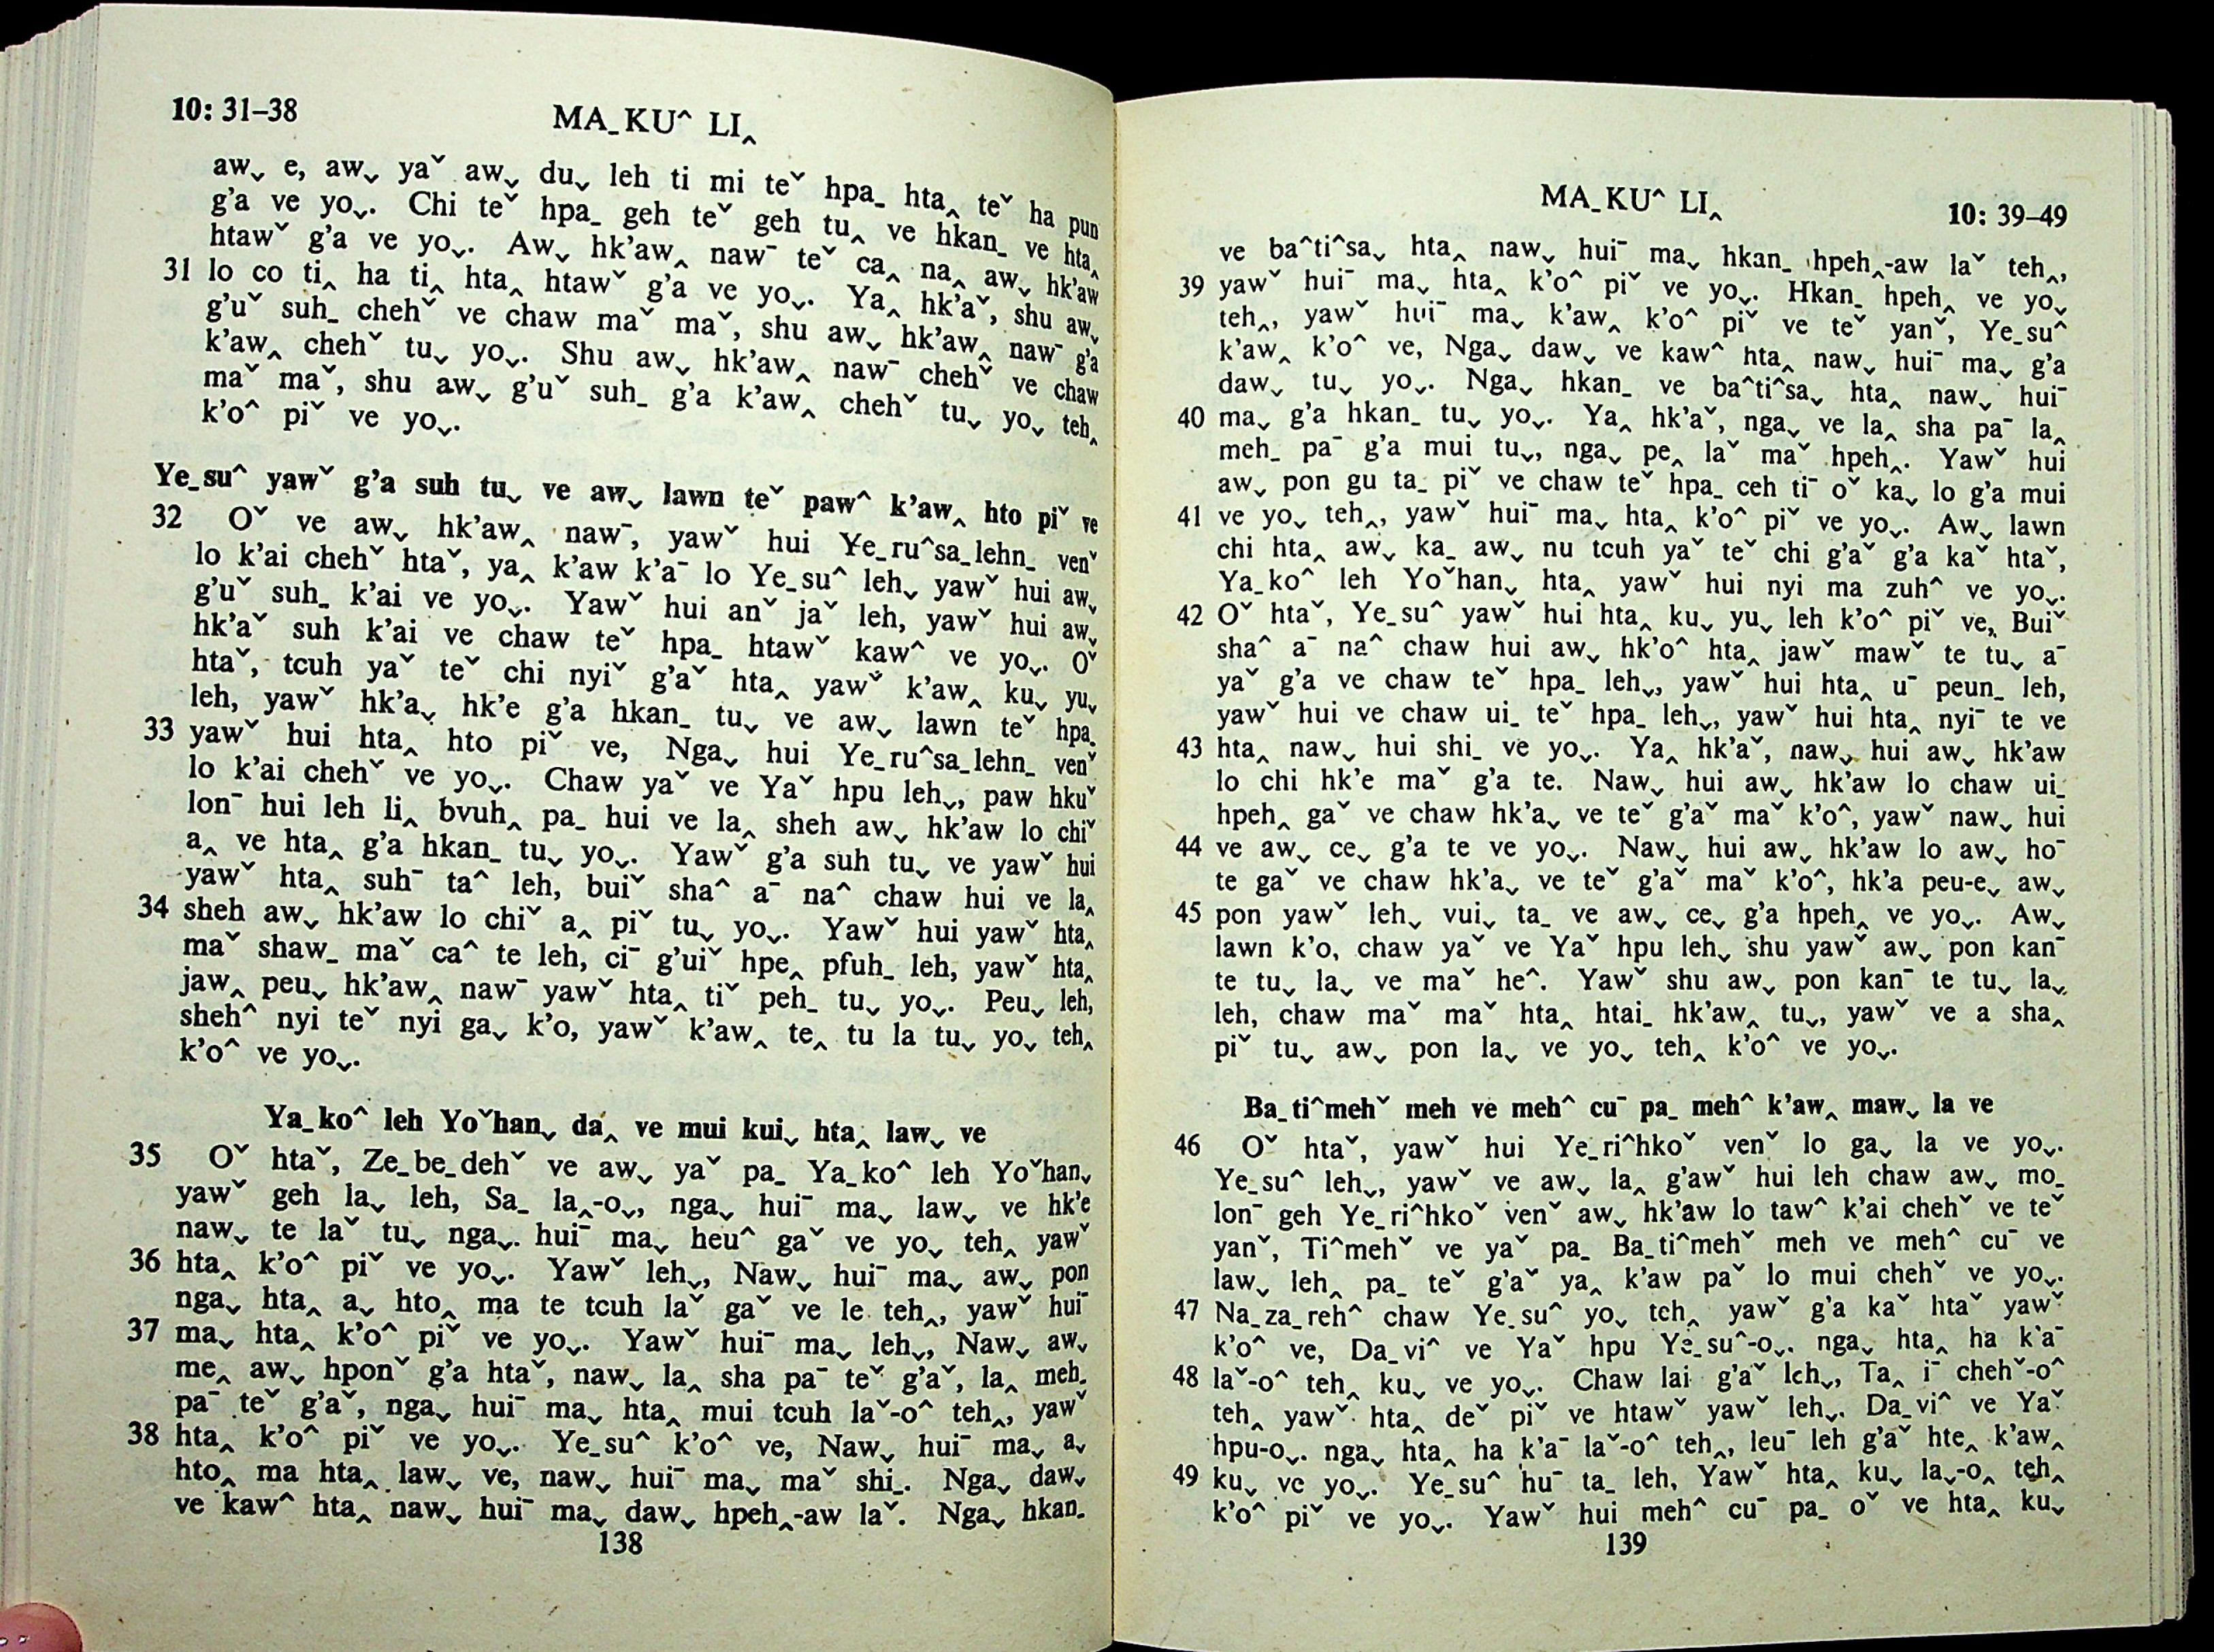 10: 31–38
MA_KU^ LI‸
aw⌄ e, aw⌄ yaˇ aw⌄ du⌄ leh ti mi teˇ hpa_ hta‸ teˇ ha pun
g'a ve yo⌄. Chi teˇ hpa_ geh teˇ geh tu‸ ve hkan_ ve hta‸
htawˇ g'a ve yo⌄. Aw⌄ hk'aw‸ naw¯ teˇ ca‸ na‸ aw⌄ hk'aw
31 lo co ti‸ ha ti‸ hta‸ htawˇ g'a ve yo⌄. Ya‸ hk'aˇ, shu aw⌄
g'uˇ suh_ chehˇ ve chaw maˇ maˇ, shu aw⌄ hk'aw‸ naw¯ g'a
k'aw‸ chehˇ tu⌄ yo⌄. Shu aw⌄ hk'aw‸ naw¯ chehˇ ve chaw
maˇ maˇ, shu aw⌄ g'uˇ suh_ g'a k'aw‸ chehˇ tu⌄ yo⌄ teh‸
k'o^ piˇ ve yo⌄.
Ye_su^ yawˇ g'a suh tu⌄ ve aw⌄ lawn teˇ paw^ k'aw‸ hto piˇ ve
32 Oˇ ve aw⌄ hk'aw‸ naw¯, yawˇ hui Ye_ru^sa_lehn_ venˇ
lo k'ai chehˇ htaˇ, ya‸ k'aw k'a¯ lo Ye_su^ leh⌄ yawˇ hui aw⌄
g'uˇ suh_ k'ai ve yo⌄. Yawˇ hui anˇ jaˇ leh, yawˇ hui aw⌄
hk'aˇ suh k'ai ve chaw teˇ hpa_ htawˇ kaw^ ve yo⌄. Oˇ
htaˇ, tcuh yaˇ teˇ chi nyiˇ g'aˇ hta‸ yawˇ k'aw‸ ku⌄ yu⌄
leh, yawˇ hk'a⌄ hk'e g'a hkan_ tu⌄ ve aw⌄ lawn teˇ hpa_
33 yawˇ hui hta‸ hto piˇ ve, Nga⌄ hui Ye_ru^sa_lehn_ venˇ
lo k'ai chehˇ ve yo⌄. Chaw yaˇ ve Yaˇ hpu leh⌄, paw hkuˇ
lon¯ hui leh li‸ bvuh‸ pa_ hui ve la‸ sheh aw⌄ hk'aw lo chiˇ
a‸ ve hta‸ g'a hkan_ tu⌄ yo⌄. Yawˇ g'a suh tu⌄ ve yawˇ hui
yawˇ hta‸ suh¯ ta^ leh, buiˇ sha^ a¯ na^ chaw hui ve la‸
34 sheh aw⌄ hk'aw lo chiˇ a‸ piˇ tu⌄ yo⌄. Yawˇ hui yawˇ hta‸
maˇ shaw_ maˇ ca^ te leh, ci¯ g'uiˇ hpe‸ pfuh_ leh, yawˇ hta‸
jaw‸ peu⌄ hk'aw‸ naw¯ yawˇ hta‸ tiˇ peh_ tu⌄ yo⌄. Peu⌄ leh,
sheh^ nyi teˇ nyi ga⌄ k'o, yawˇ k'aw‸ te‸ tu la tu⌄ yo⌄ teh‸
k'o^ ve yo⌄.
Ya_ko^ leh Yoˇhan⌄ da‸ ve mui kui⌄ hta‸ law⌄ ve
35 Oˇ htaˇ, Ze_be_dehˇ ve aw⌄ yaˇ pa_ Ya_ko^ leh Yoˇhan⌄
yawˇ geh la⌄ leh, Sa_ la‸-o⌄, nga⌄ hui¯ ma⌄ law⌄ ve hk'e
naw⌄ te laˇ tu⌄ nga⌄ hui¯ ma⌄ heu^ gaˇ ve yo⌄ teh‸ yawˇ
36 hta‸ k'o^ piˇ ve yo⌄. Yawˇ leh⌄, Naw⌄ hui¯ ma⌄ aw⌄ pon
nga⌄ hta‸ a⌄ hto‸ ma te tcuh laˇ gaˇ ve le teh‸, yawˇ hui¯
37 ma⌄ hta‸ k'o^ piˇ ve yo⌄. Yawˇ hui¯ ma⌄ leh⌄, Naw⌄ aw⌄
me‸ aw⌄ hponˇ g'a htaˇ, naw⌄ la‸ sha pa¯ teˇ g'aˇ, la‸ meh_
pa¯ teˇ g'aˇ, nga⌄ hui¯ ma⌄ hta‸ mui tcuh laˇ-o^ teh‸, yawˇ
38 hta‸ k'o^ piˇ ve yo⌄. Ye_su^ k'o^ ve, Naw⌄ hui¯ ma⌄ a⌄
hto‸ ma hta‸ law⌄ ve, naw⌄ hui¯ ma⌄ maˇ shi_. Nga⌄ daw⌄
ve kaw^ hta‸ naw⌄ hui¯ ma⌄ daw⌄ hpeh‸-aw laˇ. Nga⌄ hkan_
138
MA_KU^ LI‸
10: 39–49
ve ba^ti^sa⌄ hta‸ naw⌄ hui¯ ma⌄ hkan_ hpeh‸-aw laˇ teh‸,
39 yawˇ hui¯ ma⌄ hta‸ k'o^ piˇ ve yo⌄. Hkan_ hpeh‸ ve yo⌄
teh‸, yawˇ hui¯ ma⌄ k'aw‸ k'o^ piˇ ve teˇ yanˇ, Ye_su^
k'aw‸ k'o^ ve, Nga⌄ daw⌄ ve kaw^ hta‸ naw⌄ hui¯ ma⌄ g'a
daw⌄ tu⌄ yo⌄. Nga⌄ hkan_ ve ba^ti^sa⌄ hta‸ naw⌄ hui¯
40 ma⌄ g'a hkan_ tu⌄ yo⌄. Ya‸ hk'aˇ, nga⌄ ve la‸ sha pa¯ la‸
meh_ pa¯ g'a mui tu⌄, nga⌄ pe‸ laˇ maˇ hpeh‸. Yawˇ hui
aw⌄ pon gu ta_ piˇ ve chaw teˇ hpa_ ceh ti¯ oˇ ka⌄ lo g'a mui
41 ve yo⌄ teh‸, yawˇ hui¯ ma⌄ hta‸ k'o^ piˇ ve yo⌄. Aw⌄ lawn
chi hta‸ aw⌄ ka_ aw⌄ nu tcuh yaˇ teˇ chi g'aˇ g'a kaˇ htaˇ,
Ya_ko^ leh Yoˇhan⌄ hta‸ yawˇ hui nyi ma zuh^ ve yo⌄.
42 Oˇ htaˇ, Ye_su^ yawˇ hui hta‸ ku⌄ yu⌄ leh k'o^ piˇ ve, Buiˇ
sha^ a¯ na^ chaw hui aw⌄ hk'o^ hta‸ jawˇ mawˇ te tu⌄ a¯
yaˇ g'a ve chaw teˇ hpa_ leh⌄, yawˇ hui hta‸ u¯ peun_ leh,
yawˇ hui ve chaw ui_ teˇ hpa_ leh⌄, yawˇ hui hta‸ nyi¯ te ve
43 hta‸ naw⌄ hui shi_ ve yo⌄. Ya‸ hk'aˇ, naw⌄ hui aw⌄ hk'aw
lo chi hk'e maˇ g'a te. Naw⌄ hui aw⌄ hk'aw lo chaw ui_
hpeh‸ gaˇ ve chaw hk'a⌄ ve teˇ g'aˇ maˇ k'o^, yawˇ naw⌄ hui
44 ve aw⌄ ce⌄ g'a te ve yo⌄. Naw⌄ hui aw⌄ hk'aw lo aw⌄ ho¯
te gaˇ ve chaw hk'a⌄ ve teˇ g'aˇ maˇ k'o^, hk'a peu-e⌄ aw⌄
45 pon yawˇ leh⌄ vui⌄ ta_ ve aw⌄ ce⌄ g'a hpeh‸ ve yo⌄. Aw⌄
lawn k'o, chaw yaˇ ve Yaˇ hpu leh⌄ shu yawˇ aw⌄ pon kan¯
te tu⌄ la⌄ ve maˇ he^. Yawˇ shu aw⌄ pon kan¯ te tu⌄ la⌄
leh, chaw maˇ maˇ hta‸ htai_ hk'aw‸ tu⌄, yawˇ ve a sha‸
piˇ tu⌄ aw⌄ pon la⌄ ve yo⌄ teh‸ k'o^ ve yo⌄.
Ba_ti^mehˇ meh ve meh^ cu¯ pa_ meh^ k'aw‸ maw⌄ la ve
46 Oˇ htaˇ, yawˇ hui Ye_ri^hkoˇ venˇ lo ga⌄ la ve yo⌄.
Ye_su^ leh⌄, yawˇ ve aw⌄ la‸ g'awˇ hui leh chaw aw⌄ mo_
lon¯ geh Ye_ri^hkoˇ venˇ aw⌄ hk'aw lo taw^ k'ai chehˇ ve teˇ
yanˇ, Ti^mehˇ ve yaˇ pa_ Ba_ti^mehˇ meh ve meh^ cu¯ ve
law⌄ leh‸ pa_ teˇ g'aˇ ya‸ k'aw paˇ lo mui chehˇ ve yo⌄.
47 Na_za_reh^ chaw Ye_su^ yo⌄ teh‸ yawˇ g'a kaˇ htaˇ yawˇ
k'o^ ve, Da_vi^ ve Yaˇ hpu Ye_su^-o⌄. nga⌄ hta‸ ha k'a¯
48 laˇ-o^ teh‸ ku⌄ ve yo⌄. Chaw lai g'aˇ leh⌄, Ta‸ i¯ chehˇ-o^
teh‸ yawˇ hta‸ deˇ piˇ ve htawˇ yawˇ leh⌄. Da_vi^ ve Yaˇ
hpu-o⌄. nga⌄ hta‸ ha k'a¯ laˇ-o^ teh‸, leu¯ leh g'aˇ hte‸ k'aw‸
49 ku⌄ ve yo⌄. Ye_su^ hu¯ ta_ leh, Yawˇ hta‸ ku⌄ la⌄-o‸ teh‸
k'o^ piˇ ve yo⌄. Yawˇ hui meh^ cu¯ pa_ oˇ ve hta‸ ku⌄
139